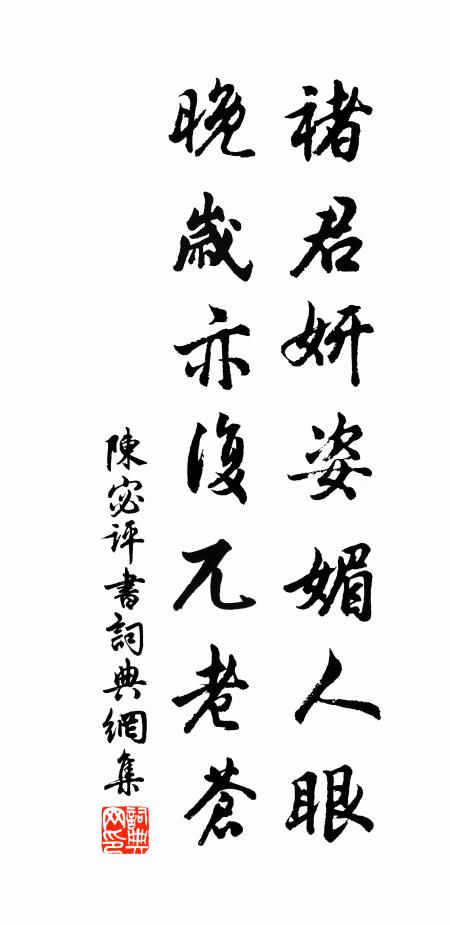 褚君妍姿媚人眼
晚歲亦復兀老蒼
陳宓評書詞典網集
詞典网印